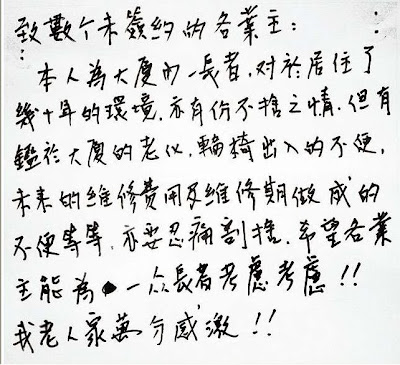 致數个未簽約的各業主：
本人為大廈內一長者，对於居住了
幾十年的環境，亦有份不捨之情，但有
鑑於大廈的老化，輪椅出入的不便，
未來的維修費用及維修期做成的
不便等等，亦要忍痛割捨，希望各業
主能為一众長者考慮考慮！！
我老人家萬分感激！！